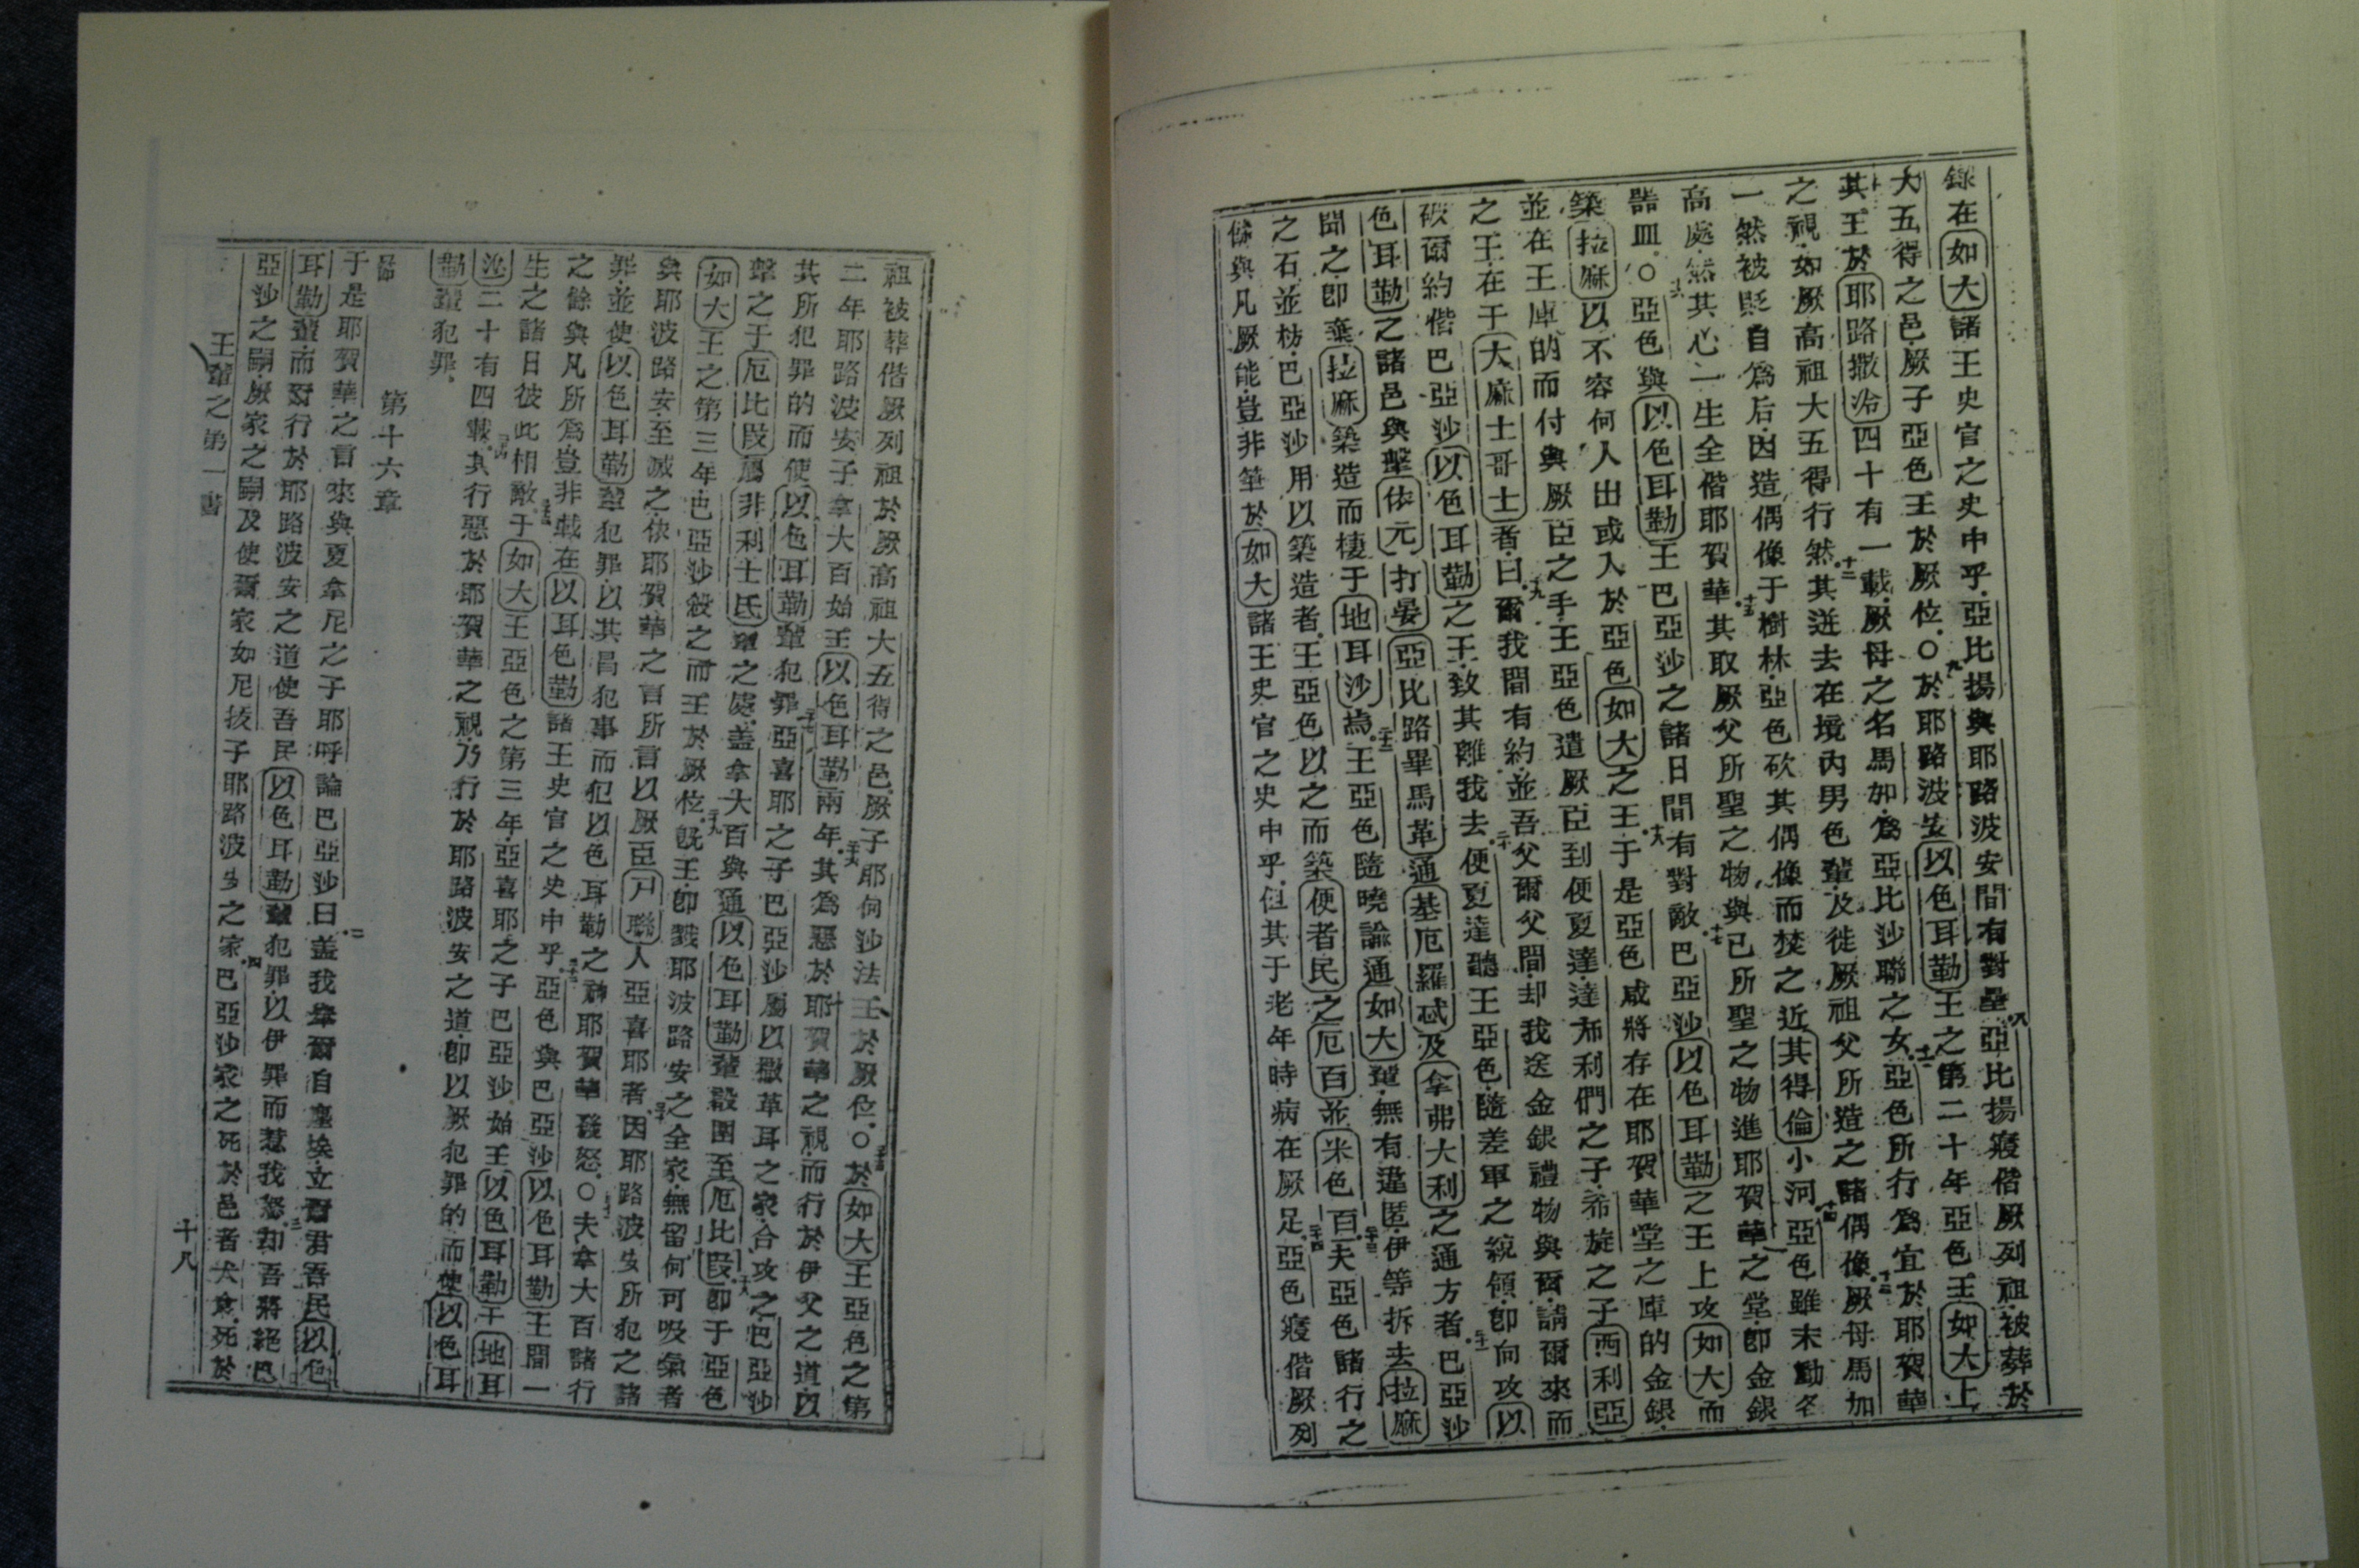 錄在如大諸王史官之史中乎亞比揚與耶路波安間有對壘八亞比揚寢偕厥列祖被葬於
大五得之邑厥子亞色王於厥位〇九於耶路波安以色耳勒王之第二十年亞色王如大上
其王於耶路撒冷四十有一載厥母之名馬加為亞比沙聯之女十一亞色所行為宜於耶賀華
之視如厥高祖大五得行然十二其迸去在境內男色輩及徙厥祖父所造之諸偶像十三厥母馬加
一然被貶自為后因造偶像于樹林亞色砍其偶像而焚之近其得倫小河十四亞色雖未勳各
高處然其心一生全偕耶賀華十五其取厥父所聖之物與己所聖之物進耶賀華之堂即金銀
諸皿〇十六亞色與以色耳勒王巴亞沙之諸日間有對敵十七巴亞沙以色耳勒之王上攻如大而
築拉麻以不容何人出或入於亞色如大之王十八于是亞色咸將存在耶賀華堂之庫的金銀
並在王庫的而付與厥臣之手王亞色遣厥臣到便夏達達布利們之子希旋之子西利亞
之王在于大麻士哥士者曰十九爾我間有約並吾父爾父間却我送金銀禮物與爾請爾來而
破爾約偕巴亞沙以色耳勒之王致其離我去二十便夏達聽王亞色隨差軍之統領即向攻以
色耳勒之諸邑與擊依元打晏亞比路畢馬革通基厄羅忒及拿弗大利之通方者二十一巴亞沙
聞之即棄拉麻築造而棲于地耳沙焉二十二王亞色隨曉諭通如大輩無有遺匿伊等拆去拉麻
之石並枋巴亞沙用以築造者王亞色以之而築便者民之厄百並米色百二十三夫亞色諸行之
餘與凡厥能豈非筆於如大諸王史官之史中乎但其于老年時病在厥足二十四亞色寢偕厥列
祖被葬偕厥列祖於厥高祖大五得之邑厥子耶何沙法王於厥位〇二十五於如大王亞色之第
二年耶路波安子拿大百始王以色耳勒兩年二十六其為惡於耶賀華之視而行於伊父之道以
其所犯罪的而使以色耳勒輩犯罪二十七亞喜耶之子巴亞沙屬以撒革耳之家合攻之巴亞沙
擊之于厄比叚屬非利士氏輩之處盖拿大百與通以色耳勒輩設圍至厄比叚二十八即于亞色
如大王之第三年巴亞沙殺之而王於厥位二十九既王即戮耶波路安之全家無留何可吸氣者
與耶波路安至滅之依耶賀華之言所言以厥臣尸聯人亞喜耶者三十因耶路波安所犯之諸
罪並使以色耳勒輩犯罪以其冒犯事而犯以色耳勒之神耶賀華發怒〇三十一夫拿大百諸行
之餘與凡所為豈非載在以耳色勒諸王史官之史中乎三十二亞色與巴亞沙以色耳勒王間一
生之諸日彼此相敵三十三于如大王亞色之第三年亞喜耶之子巴亞沙始王以色耳勒于地耳
沙二十有四載三十四其行惡於耶賀華之視乃行於耶路波安之道即以厥犯罪的而使以色耳
勒輩犯罪
第十六章
一節于是耶賀華之言來與夏拿尼之子耶呼論巴亞沙曰二盖我舉爾自塵埃立爾君吾民以色
耳勒輩而爾行於耶路波安之道使吾民以色耳勒輩犯罪以伊罪而惹我怒三却吾將絕巴
亞沙之嗣厥家之嗣及使爾家如尼拔子耶路波安之家四巴亞沙家之死於邑者犬食死於
王輩之第一書
十八